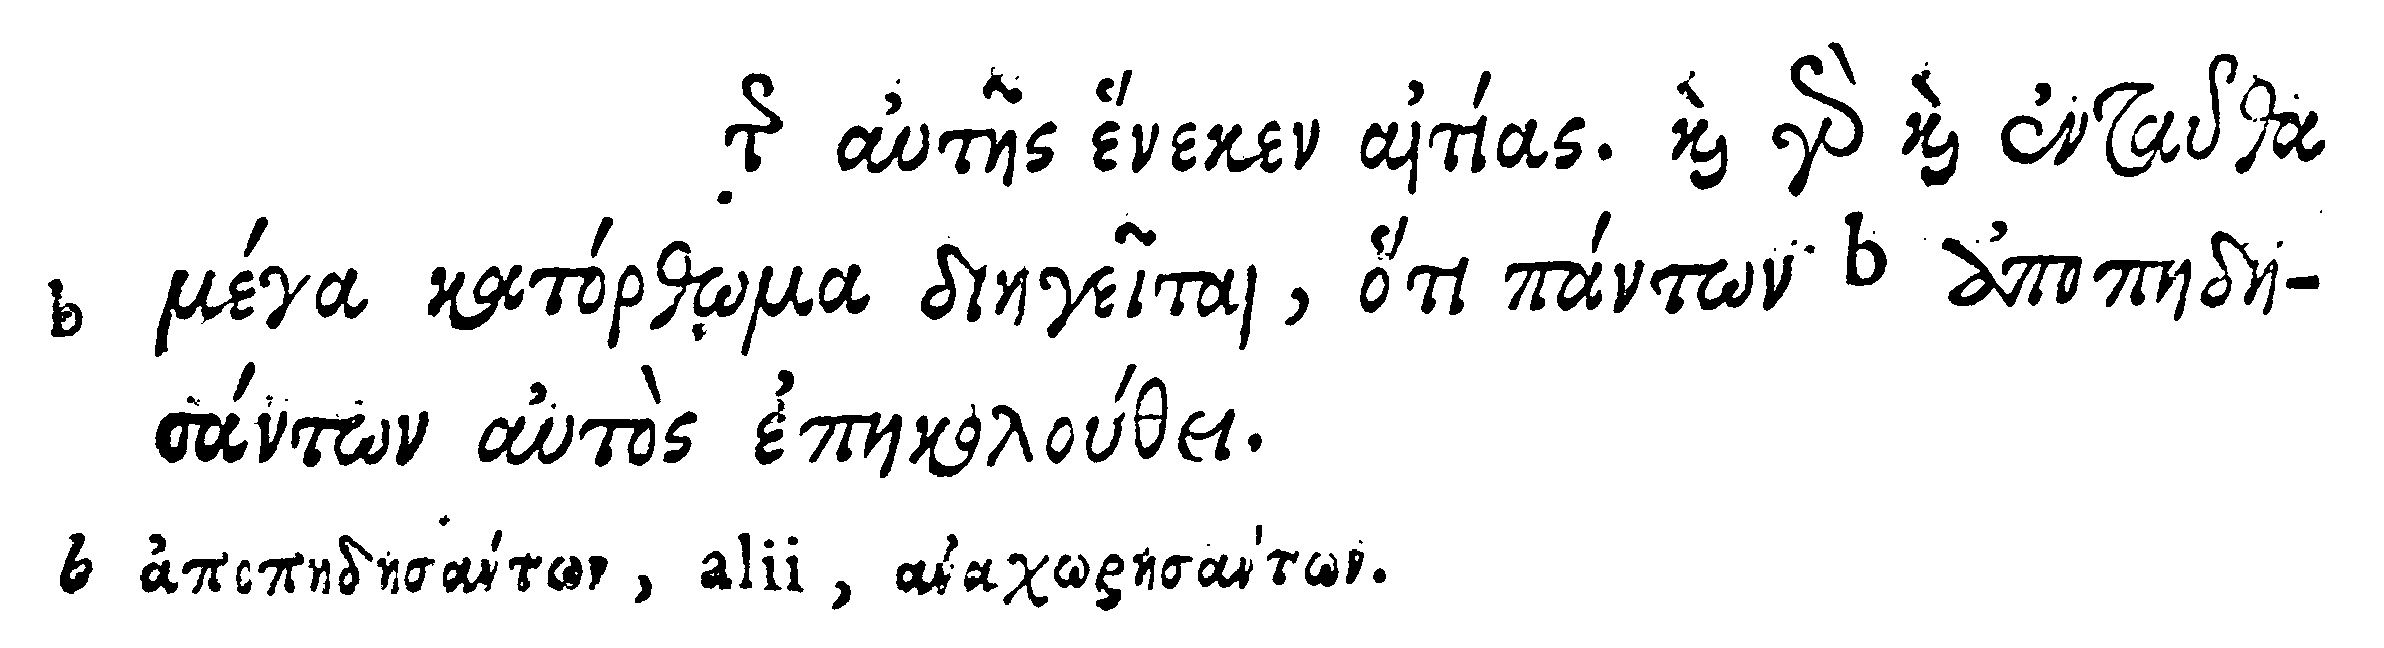 τῆς αὐτῆς ἕνεκεν αἰτίας. καὶ γὰρ καὶ ἐνταῦθα
b μέγα κατόρθωμα διηγεῖται, ὅτι πάντων b ἀποπηδη-
σάντων αὐτὸς ἐπηκολούθει.
b ἀποπηδησάντων, alii, ἀναχωρησάντων.